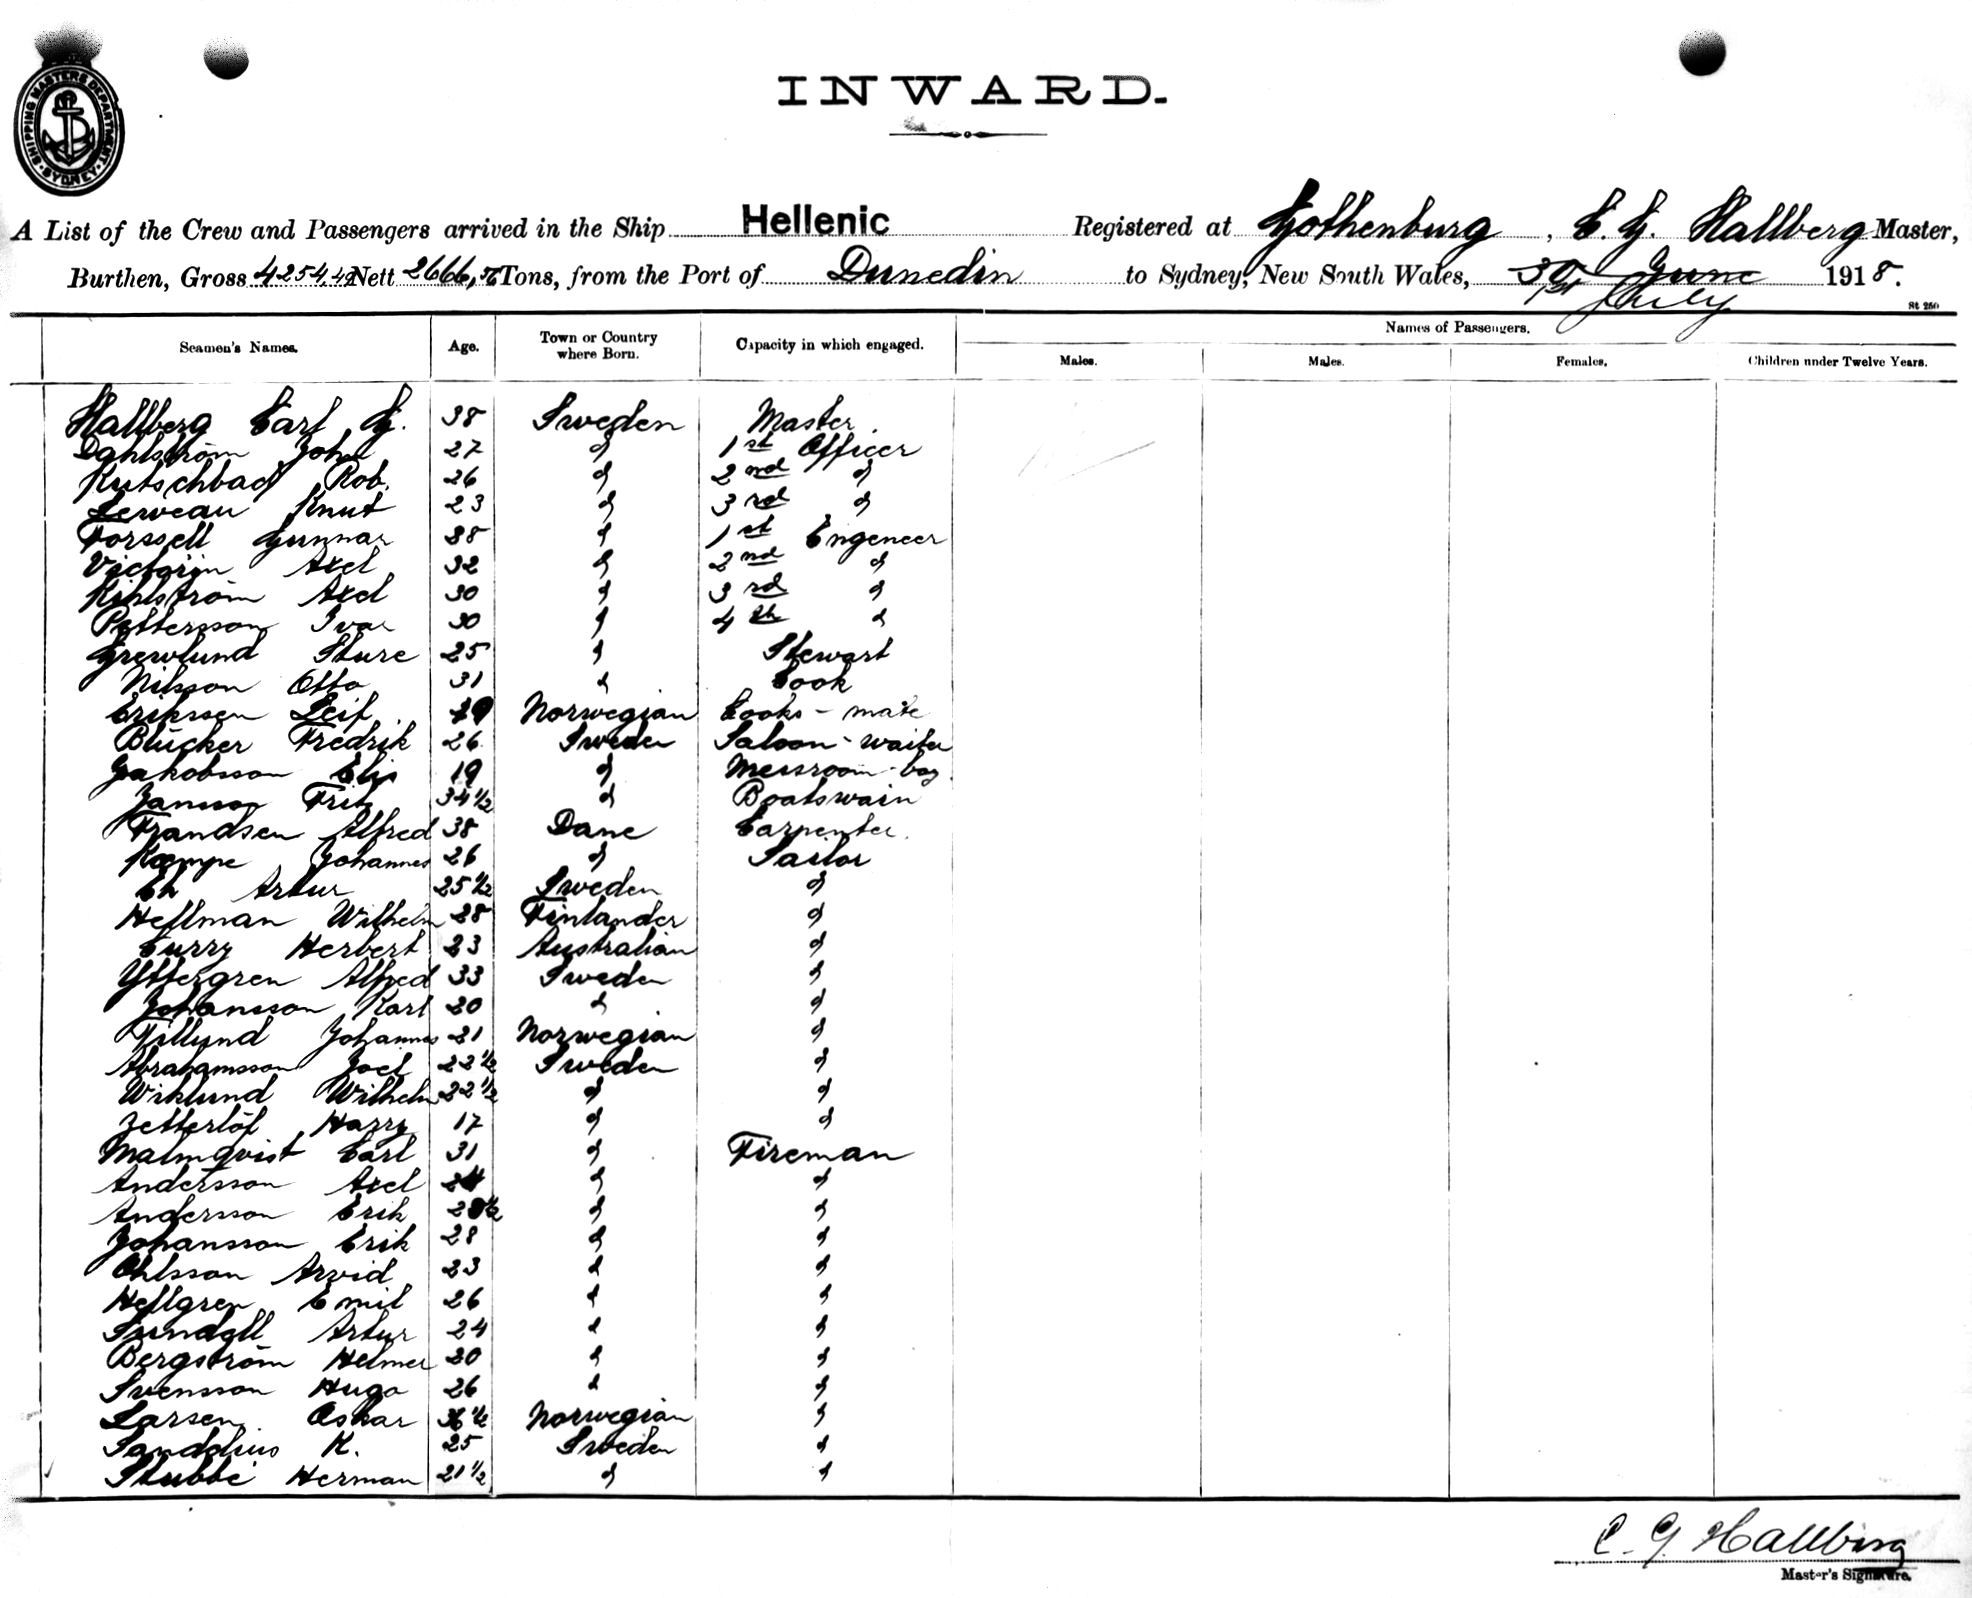 SHIPPING MASTERS DEPARTMENT
SYDNEY
INWARD.
A List of the Crew and Passengers arrived in the Ship Hellenic Registered at Gothenburg, C. G. Hallberg Master,
Burthen, Gross 4254,49 Nett 2666,56 Tons, from the Port of Dunedin to Sydney, New South Wales, 30 June 1918.
1st July
St 250
Seamen's Names. Age. Town or Country where Born. Capacity in which engaged. Names of Passengers.
Males. Males. Females. Children under Twelve Years.
Hallberg Carl G. 38 Sweden Master
Dahlström John 27 " 1st Officer
Kutschbach Rob. 26 " 2nd "
Lerweau Knut 23 " 3rd "
Forssell Gunnar 38 " 1st Engeneer
Victorin Axel 32 " 2nd "
Kihlström Axel 30 " 3rd "
Pettersson Ivar 30 " 4th "
Grewlund Sture 25 " Stewart
Nilsson Otto 31 " Cook
Erikssen Leif 19 Norwegian Cooks-mate
Blücker Fredrik 26 Sweden Saloon-waiter
Jakobsson Elis 19 " Messroom-boy
Jansson Fritz 34 1/2 " Boatswain
Frandsen Alfred 38 Dane Carpenter.
Kæmpe Johannes 26 " Sailor
Ek Artur 25 1/2 Sweden "
Hellman Wilhelm 28 Finlander "
Curry Herbert 23 Australian "
Yttergren Alfred 33 Sweden "
Johansson Karl 20 " "
Tillund Johannes 21 Norwegian "
Abrahamsson Joel 22 1/2 Sweden "
Wiklund Wilhelm 22 1/2 " "
Zetterlöf Harry 17 " "
Malmqvist Carl 31 " Fireman
Andersson Axel 24 " "
Andersson Erik " "
Johansson Erik 28 " "
Ohlsson Arvid 23 " "
Hellgren Emil 26 " "
Sundell Artur 24 " "
Bergström Helmer 20 " "
Svensson Hugo 26 " "
Larsen Oskar 36 1/2 Norwegian "
Sandelius K. 25 Sweden "
Stubbe Herman 21 1/2 " "
C. G. Hallberg
Master's Signature.